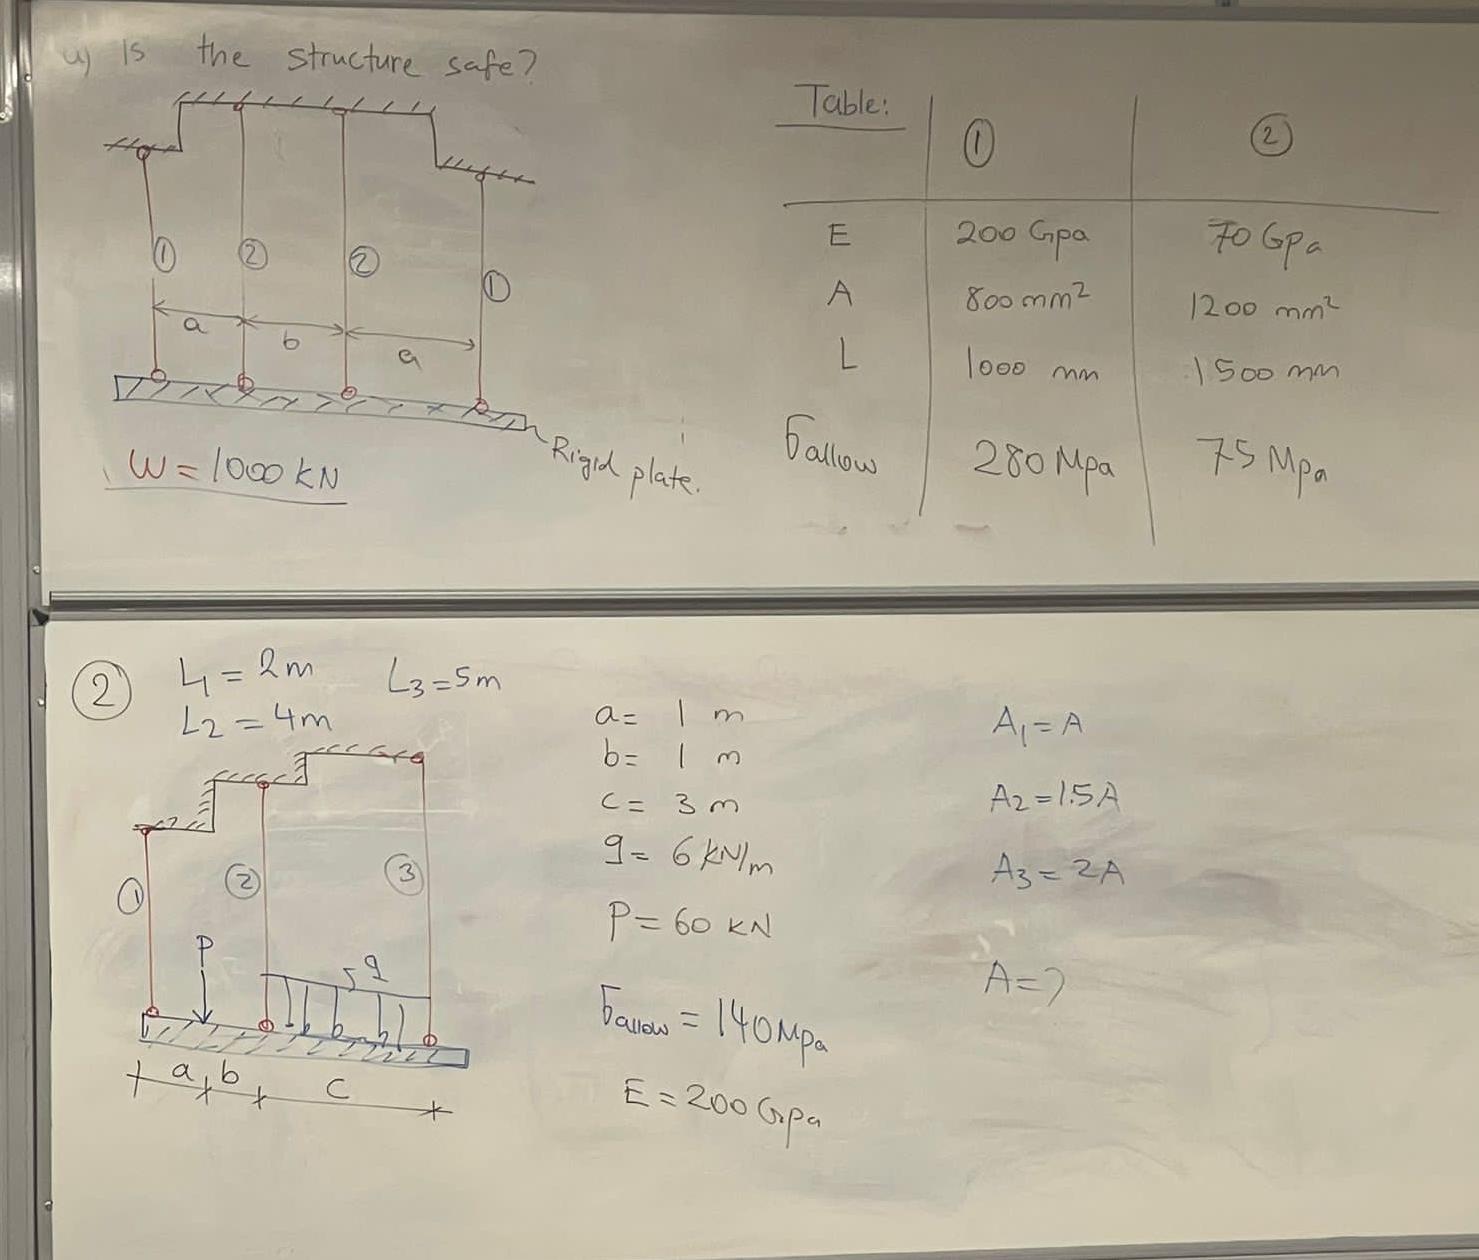 a) Is the structure safe?
① ② ② ①
a b a
Rigid plate.
W = 1000 kN
Table: ① ②
E 200 Gpa 70 GPa
A 800 mm² 1200 mm²
L 1000 mm 1500 mm
σallow 280 Mpa 75 Mpa
② L1 = 2m L3 = 5m
L2 = 4m
① ② ③
P q
a b c
a = 1 m
b = 1 m
c = 3 m
q = 6 kN/m
P = 60 kN
σallow = 140 Mpa
E = 200 Gpa
A1 = A
A2 = 1.5A
A3 = 2A
A = ?